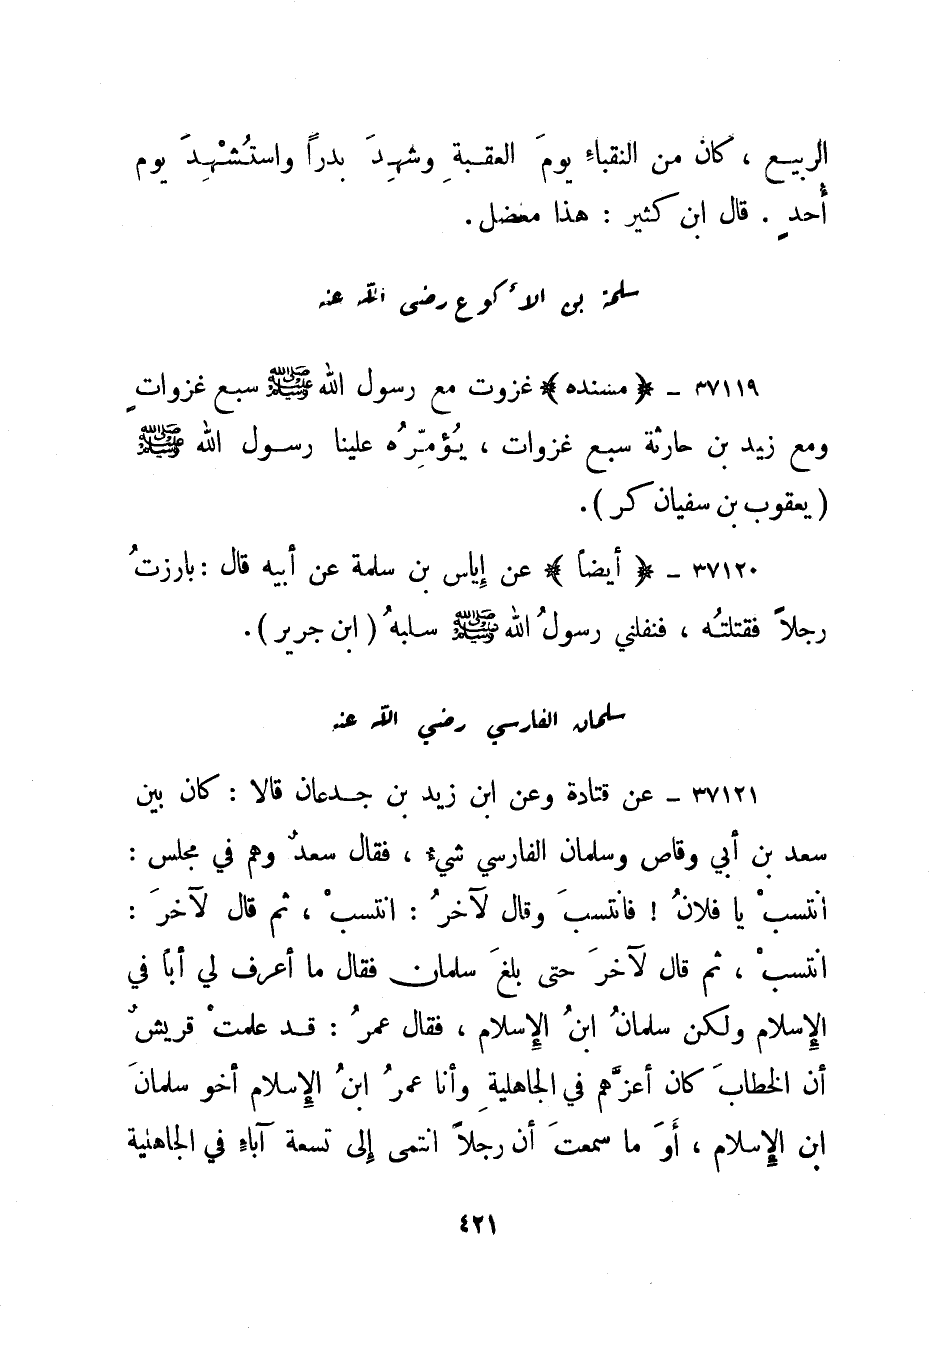 الربيع ، كان من النقباء يومَ العقبةِ وشهِدَ بدراً واستُشْهِدَ يوم
أُحدٍ . قال ابن كثير : هذا معضل .
سلمة بن الأكوع رضى الله عنه
٣٧١١٩ - ﴿ مسنده ﴾ غزوت مع رسول الله ﷺ سبع غزوات ٍ
ومع زيد بن حارثة سبع غزوات ، يُؤمِّرُه علينا رسول الله ﷺ
( يعقوب بن سفيان كر ) .
٣٧١٢٠ - ﴿ أيضاً ﴾ عن إياس بن سلمة عن أبيه قال : بارزتُ
رجلاً فقتلتُه ، فنفلني رسولُ الله ﷺ سلبهُ ( ابن جرير ) .
سلمان الفارسي رضي الله عنه
٣٧١٢١ - عن قتادة وعن ابن زيد بن جدعان قالا : كان بين
سعد بن أبي وقاص وسلمان الفارسي شيء ، فقال سعدٌ وهم في مجلس :
انتسبْ يا فلانُ ! فانتسبَ وقال لآخرُ : انتسبْ ، ثم قال لآخرَ :
انتسبْ ، ثم قال لآخرَ حتى بلغَ سلمان فقال ما أعرف لي أباً في
الإسلام ولكن سلمانُ ابنُ الإسلام ، فقال عمرُ : قد علمتْ قريشٌ
أن الخطابَ كان أعزَّهم في الجاهليةِ وأنا عمرُ ابنُ الإسلام أخو سلمانَ
ابن الإسلام ، أوَ ما سمعتَ أن رجلاً انتمى إلى تسعة آباءٍ في الجاهلية
٤٢١